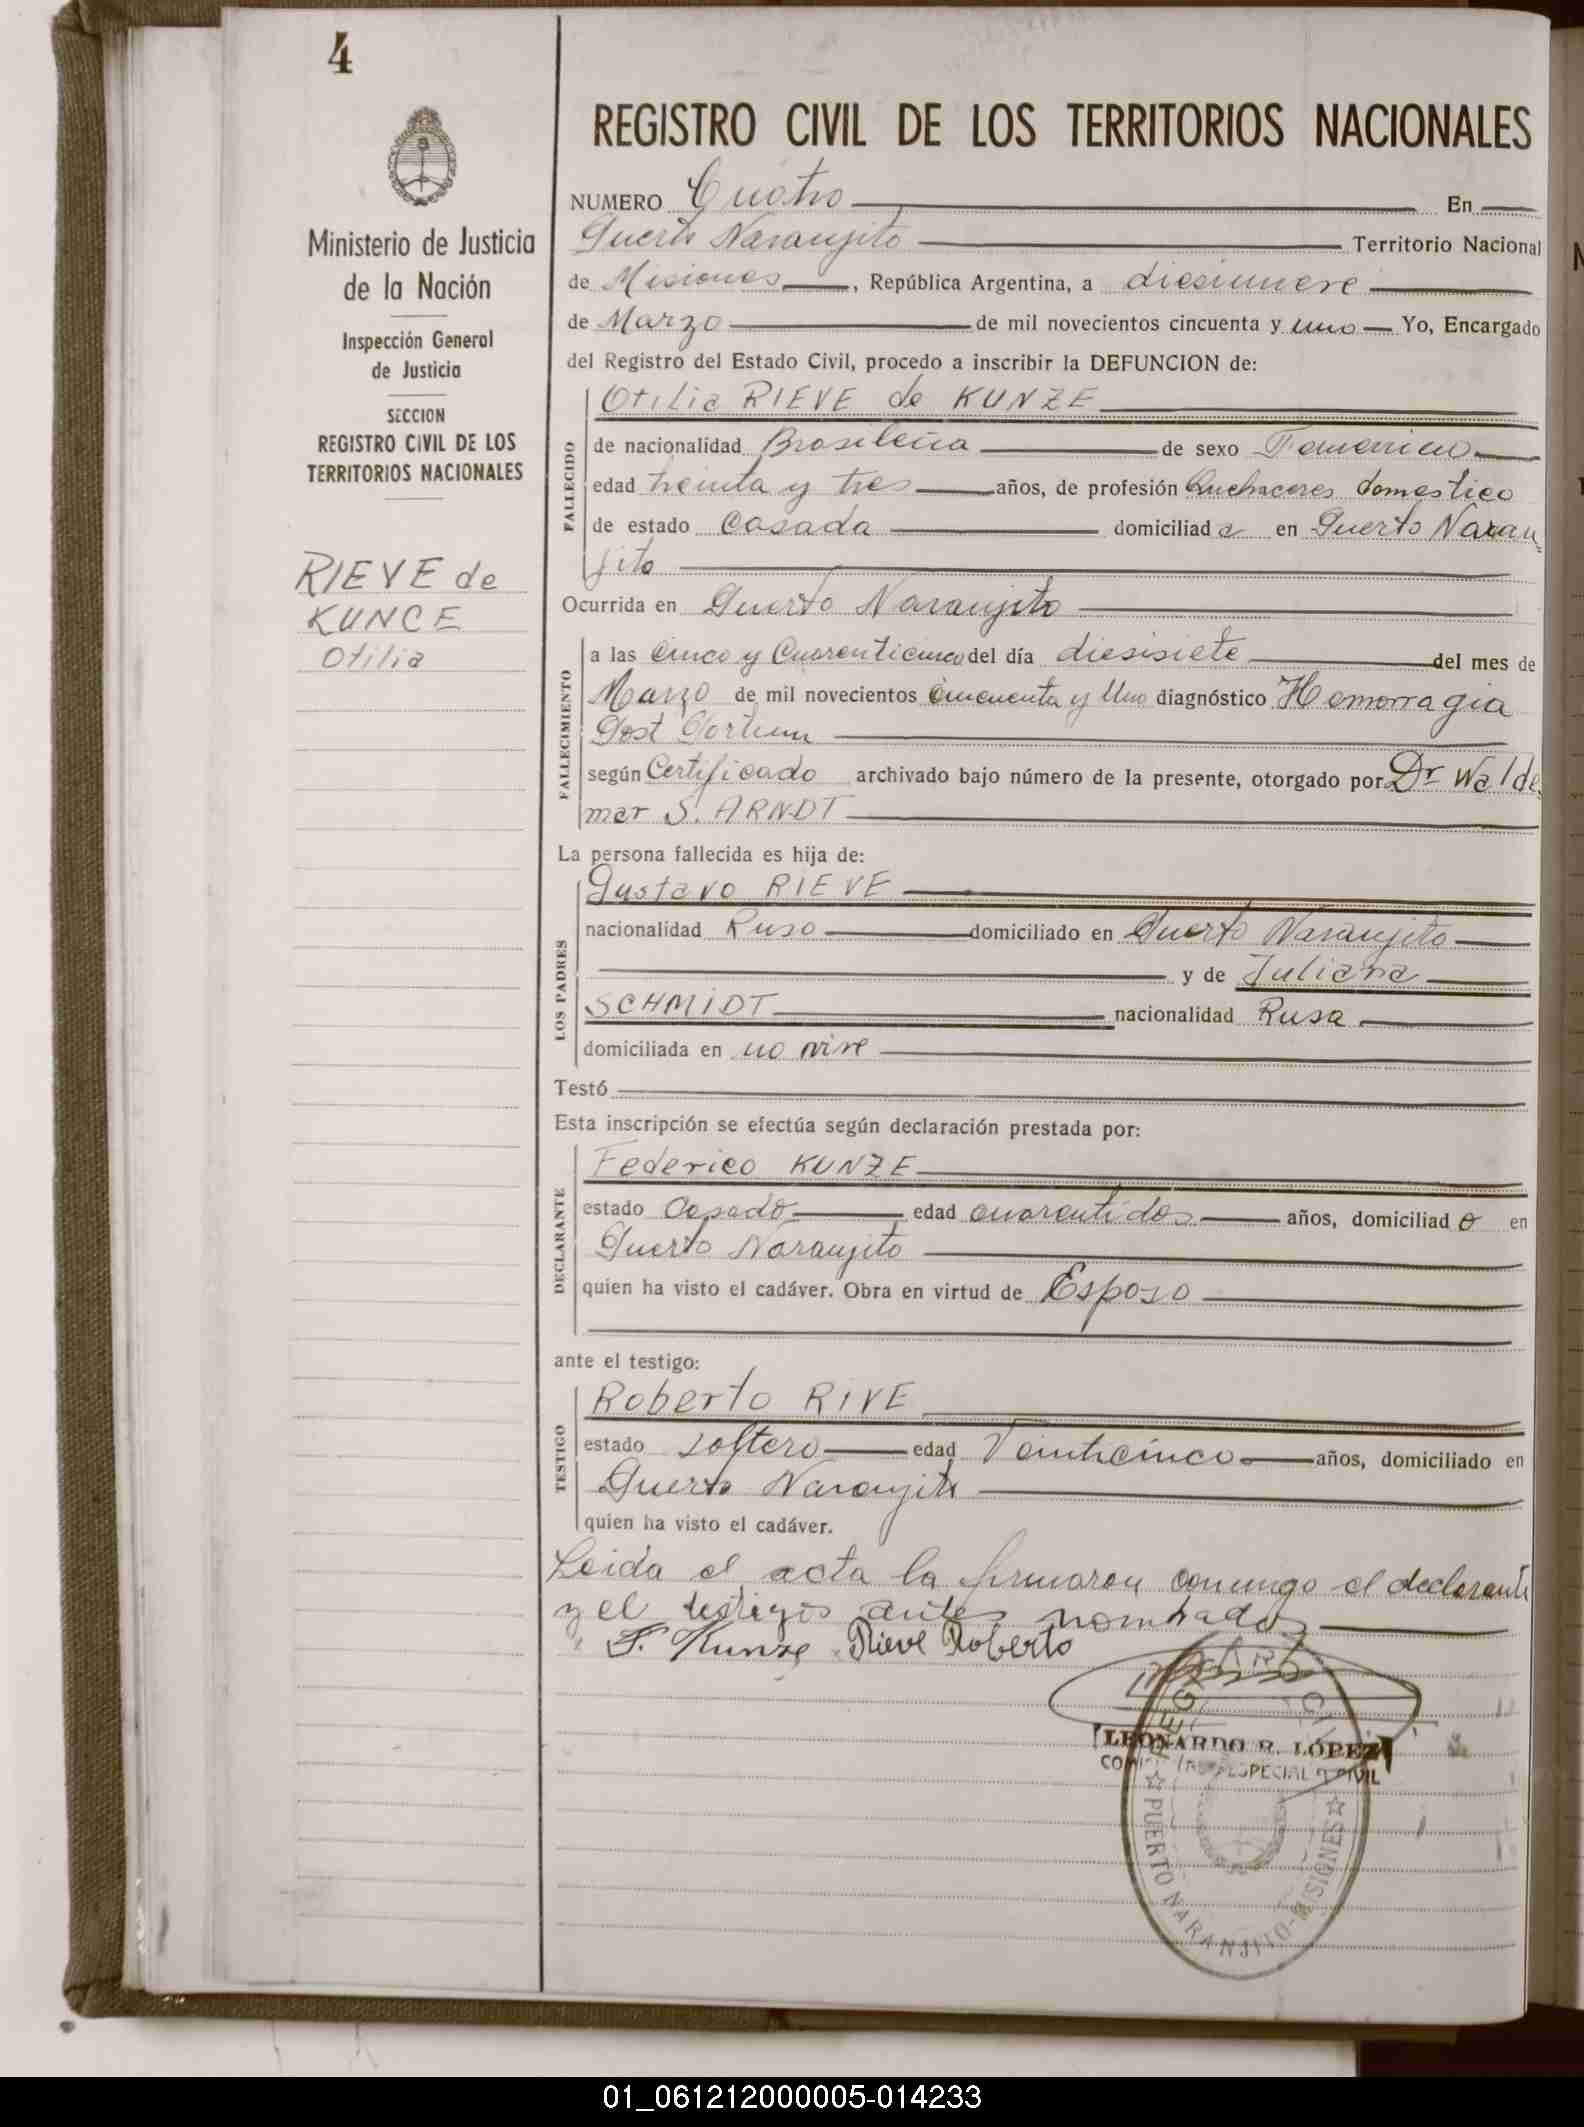 4
Ministerio de Justicia
de la Nación
Inspección General
de Justicia
SECCION
REGISTRO CIVIL DE LOS
TERRITORIOS NACIONALES
RIEVE de
KUNCE
Otilia
REGISTRO CIVIL DE LOS TERRITORIOS NACIONALES
NUMERO Cuatro En
Puerto Naranjito Territorio Nacional
de Misiones, República Argentina, a diesinueve
de Marzo de mil novecientos cincuenta y uno Yo, Encargado
del Registro del Estado Civil, procedo a inscribir la DEFUNCION de:
FALLECIDO
Otilia RIEVE de KUNZE
de nacionalidad Brasileña de sexo Femenino
edad treinta y tres años, de profesión Quehaceres domestico
de estado Casada domiciliada en Puerto Naran
jito
Ocurrida en Puerto Naranjito
FALLECIMIENTO
a las Cinco y Cuarenticinco del día diesisiete del mes de
Marzo de mil novecientos Cincuenta y Uno diagnóstico Hemorragia
Post Portum
según Certificado archivado bajo número de la presente, otorgado por Dr Walde
mar S. ARNDT
La persona fallecida es hija de:
LOS PADRES
Gustavo RIEVE
nacionalidad Ruso domiciliado en Puerto Naranjito
y de Juliana
SCHMIDT nacionalidad Rusa
domiciliada en no vive
Testó
Esta inscripción se efectúa según declaración prestada por:
DECLARANTE
Federico KUNZE
estado Casado edad cuarentidos años, domiciliado en
Puerto Naranjito
quien ha visto el cadáver. Obra en virtud de Esposo
ante el testigo:
TESTIGO
Roberto RIVE
estado soltero edad Veinticinco años, domiciliado en
Puerto Naranjito
quien ha visto el cadáver.
Leida el acta la firmaron conmigo el declarante
y el testigos antes nombrados
F. Kunze Rieve Roberto
REGISTRO CIVIL
LEONARDO R. LÓPEZ
ESPECIAL CIVIL
☆ PUERTO NARANJITO-MISIONES ☆
01_061212000005-014233